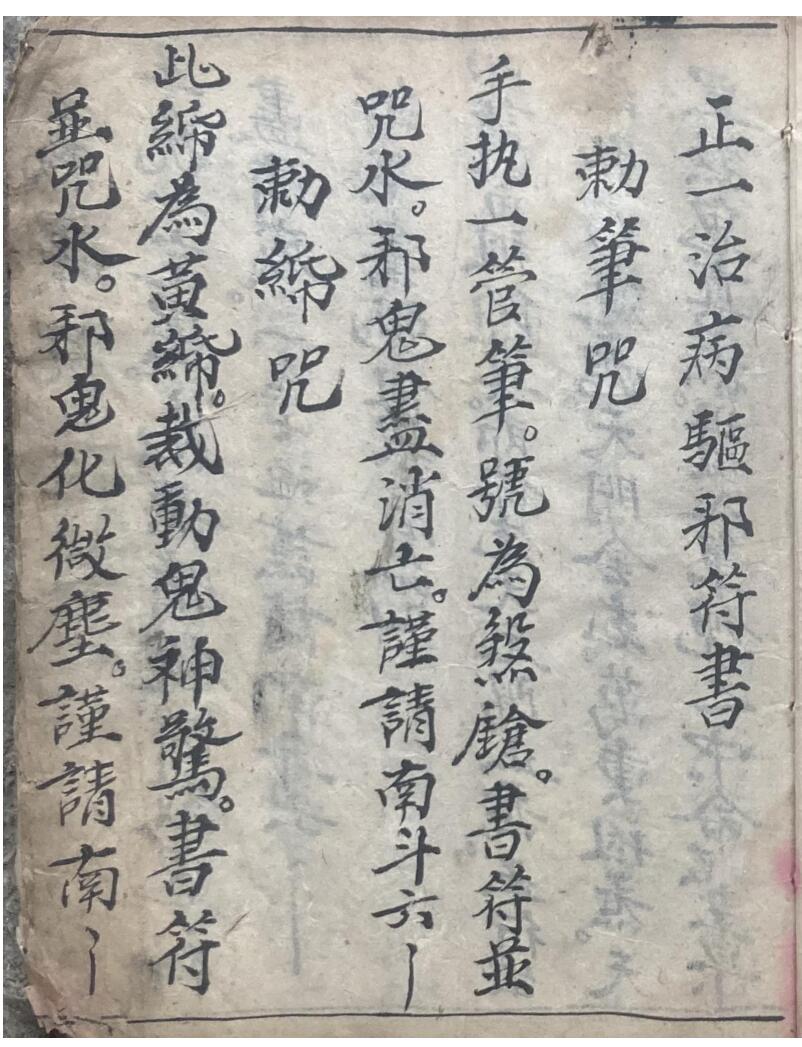 正一治病驅邪符書
勅筆咒
手执一管筆。號為煞鎗。書符並
咒水。邪鬼盡消亡。謹請南斗六〡
勅締咒
此締為黃締。裁動鬼神驚。書符
並咒水。邪鬼化微塵。謹請南〡〡